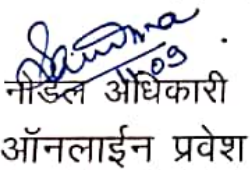 नोडल अधिकारी
ऑनलाईन प्रवेश